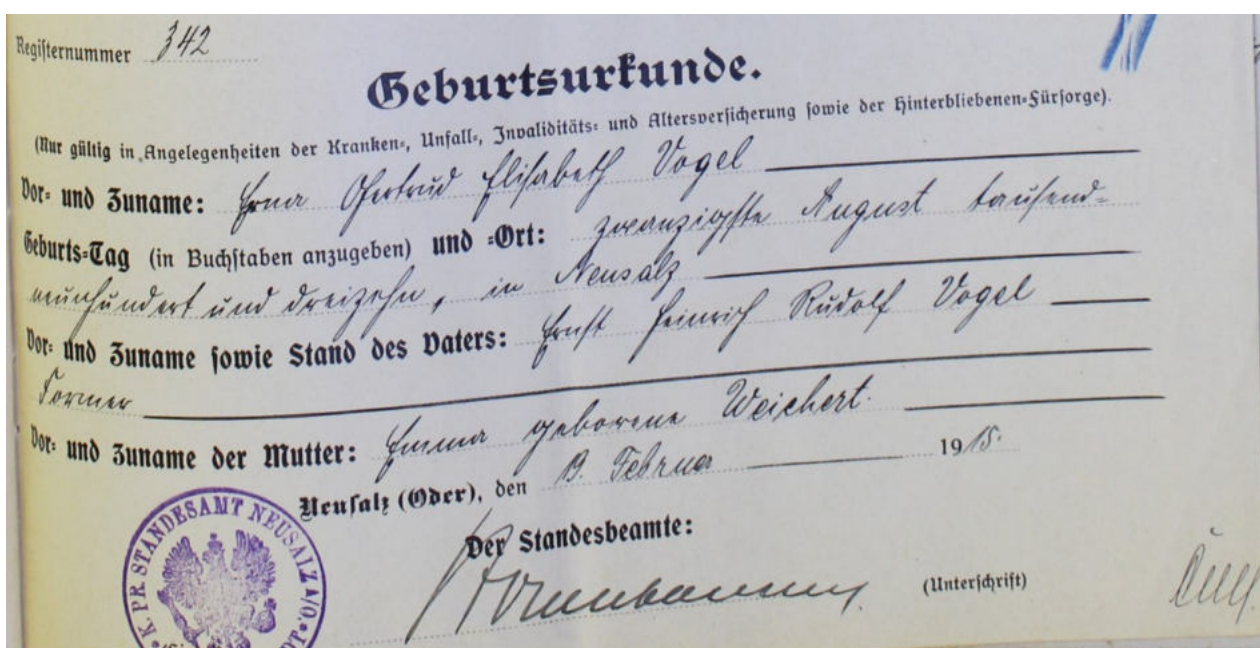 Registernummer 342
Geburtsurkunde.
(Nur gültig in Angelegenheiten der Kranken-, Unfall-, Invaliditäts- und Altersversicherung sowie der Hinterbliebenen-Fürsorge).
Vor- und Zuname: Erna Gertrud Elisabeth Vogel
Geburts-Tag (in Buchstaben anzugeben) und -Ort: zwanzigste August tausend-
neunhundert und dreizehn, in Neusalz
Vor- und Zuname sowie Stand des Vaters: Ernst Heinrich Rudolf Vogel
Former
Vor- und Zuname der Mutter: Emma geborene Weichert.
Neusalz (Oder), den 13. Februar 1915.
K. PR. STANDESAMT NEUSALZ A/O.
Der Standesbeamte:
(Unterschrift)